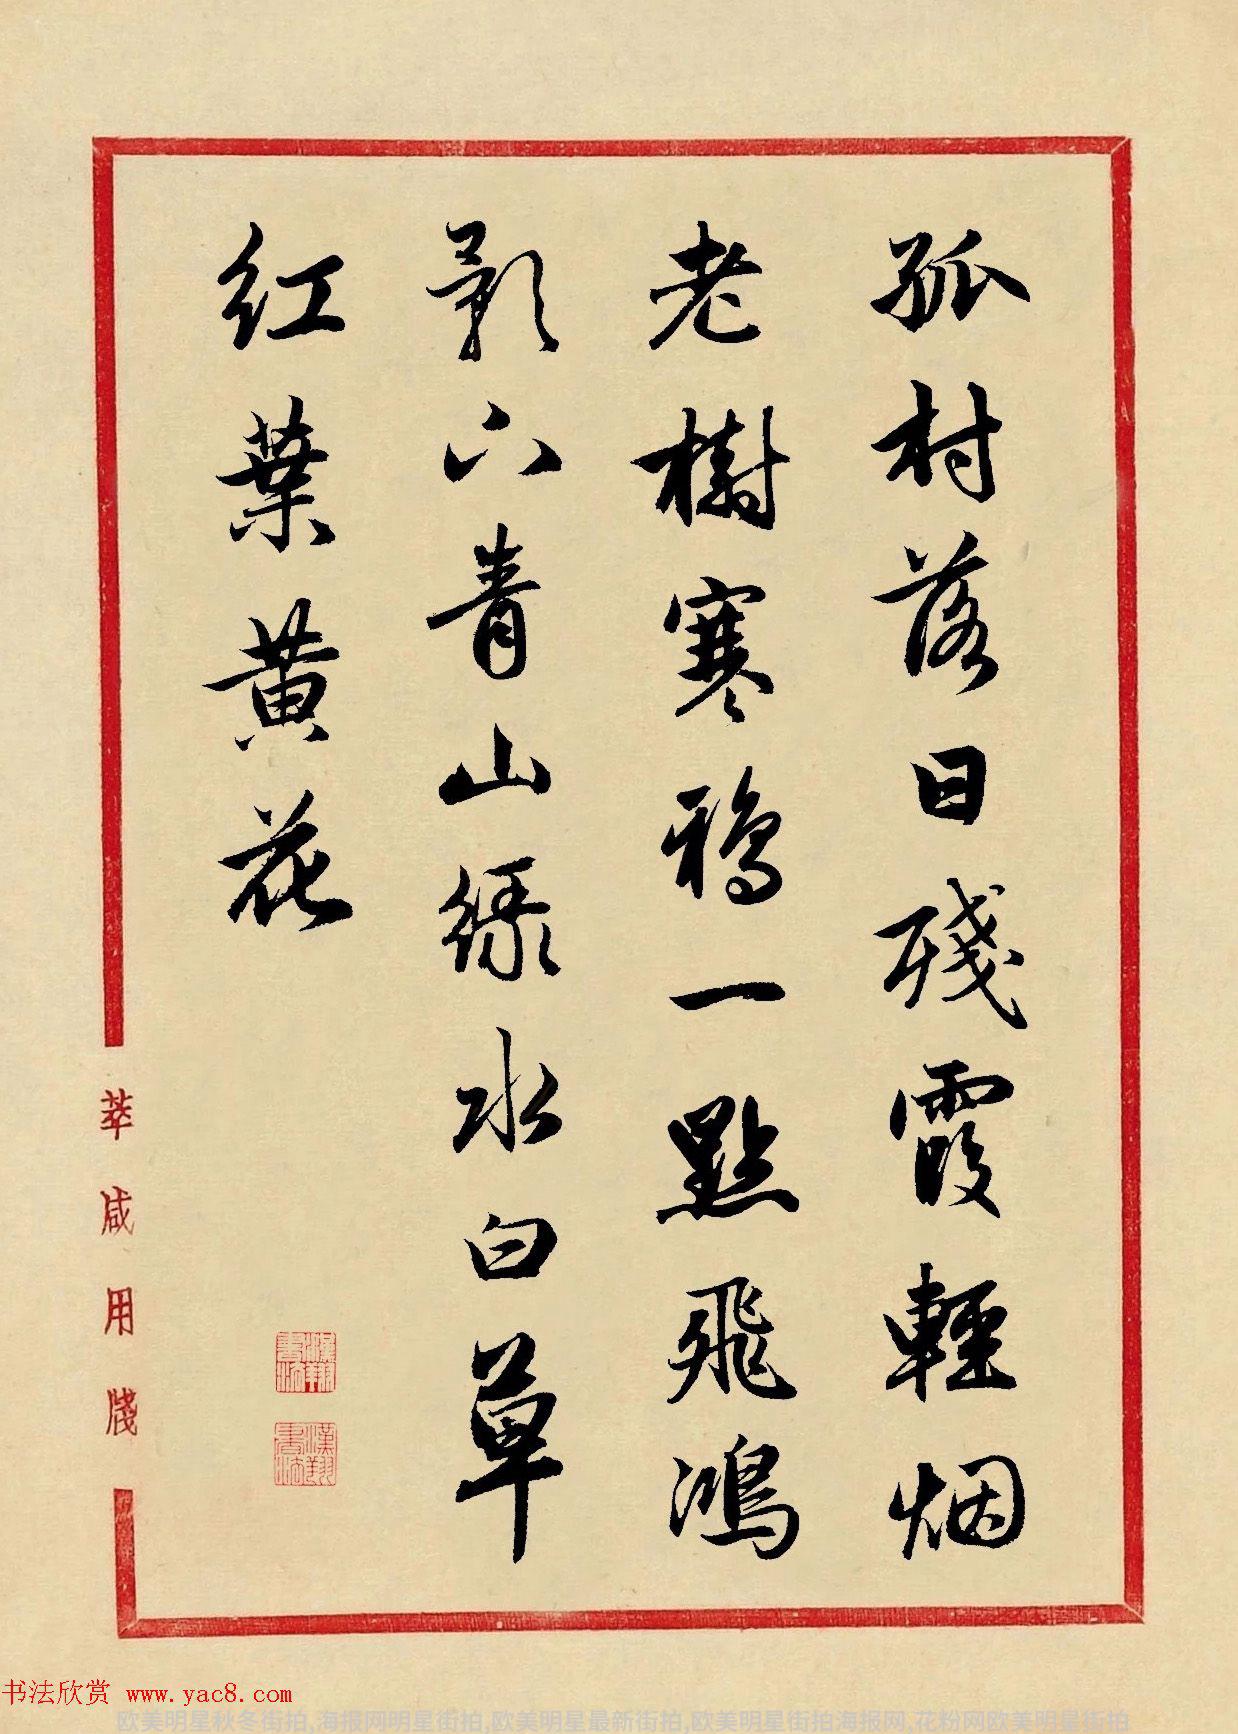 孤村落日殘霞輕烟
老樹寒鴉一點飛鴻
影下青山綠水白草
紅葉黃花
萃咸用牋
漢翔書法
漢翔書法
书法欣赏 www.yac8.com
欧美明星秋冬街拍,海报网明星街拍,欧美明星最新街拍,欧美明星街拍海报网,花粉网欧美明星街拍